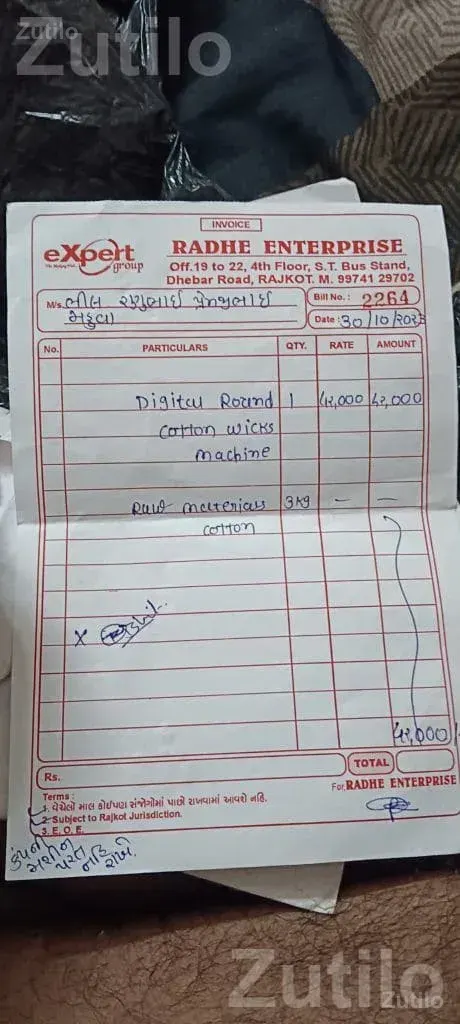 Zutilo
Zutilo
INVOICE
eXpert
group
RADHE ENTERPRISE
Off.19 to 22, 4th Floor, S.T. Bus Stand,
Dhebar Road, RAJKOT. M. 99741 29702
M/s. ભીલ પ્રેમજીભાઈ
મહુવા
Bill No.: 2264
Date: 30/10/2023
No. PARTICULARS QTY. RATE AMOUNT
Digital Round 1 42,000 42,000
cotton wicks
machine
Raw materials 3kg — —
cotton
X
42,000/
Rs. TOTAL
Terms :
1. વેચેલો માલ કોઈપણ સંજોગોમાં પાછો રાખવામાં આવશે નહિ.
2. Subject to Rajkot Jurisdiction.
3. E. O. E.
For, RADHE ENTERPRISE
કંપની
મશીન
પરત
નહિ
રાખે.
Zutilo
Zutilo